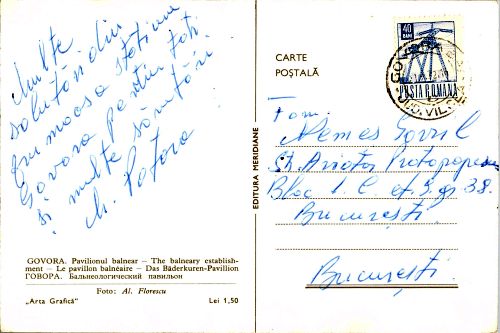 Multe
salutări din
frumoasa stațiune
Govora pentru toți
și multe sănătăți
GOVORA. Pavilionul balnear — The balneary establish-
ment — Le pavillon balnéaire — Das Bäderkuren-Pavillion
ГОВОРА. Бальнеологический павильон
Foto: Al. Florescu
„Arta Grafică" Lei 1,50
EDITURA MERIDIANE
CARTE
POȘTALĂ
40
BANI
POSTA ROMANA
GOVORA
JUD. VILCEA
Fam.
Nemes Gavril
Str. Aviator Protopopescu
Bloc 1
București.
București.